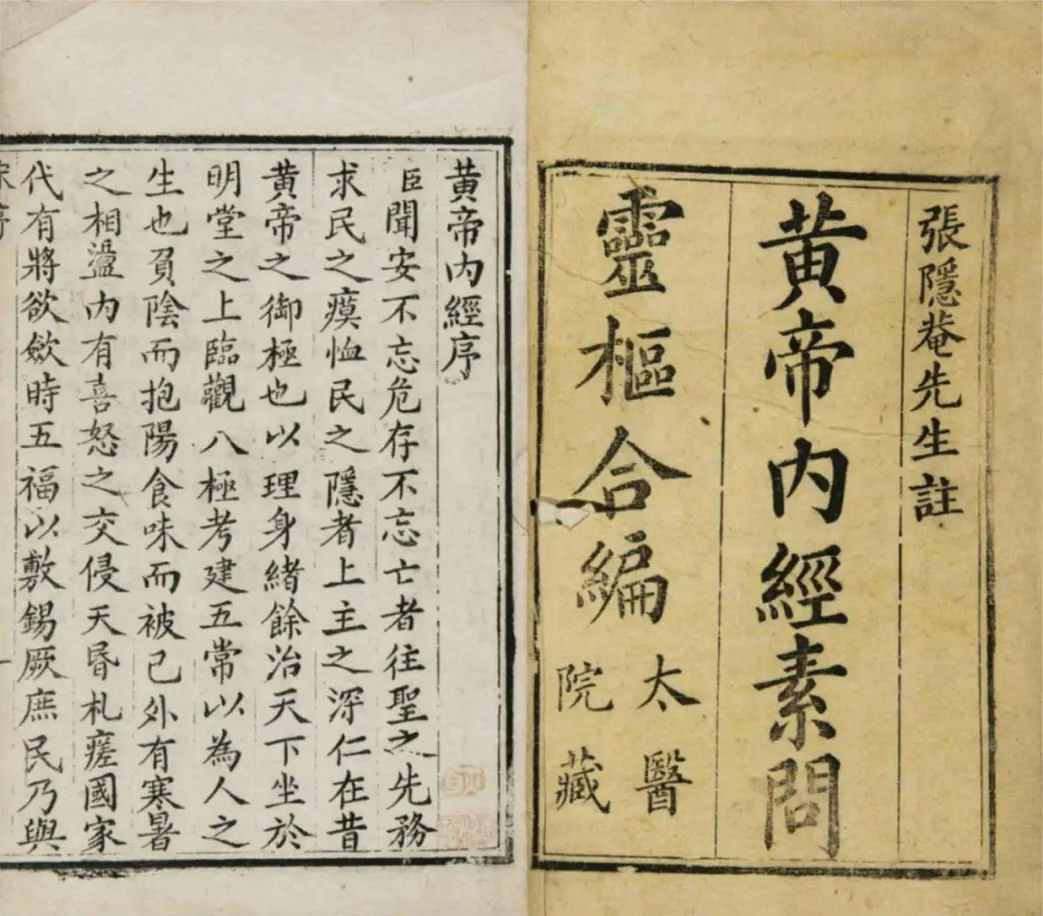 張隱菴先生註
黃帝內經素問
靈樞合編
太醫
院藏
黃帝內經序
臣聞安不忘危存不忘亡者往聖之先務
求民之瘼恤民之隱者上主之深仁在昔
黃帝之御極也以理身緒餘治天下坐於
明堂之上臨觀八極考建五常以為人之
生也負陰而抱陽食味而被已外有寒暑
之相盪內有喜怒之交侵天昬札瘥國家
代有將欲斂時五福以敷錫厥庶民乃與